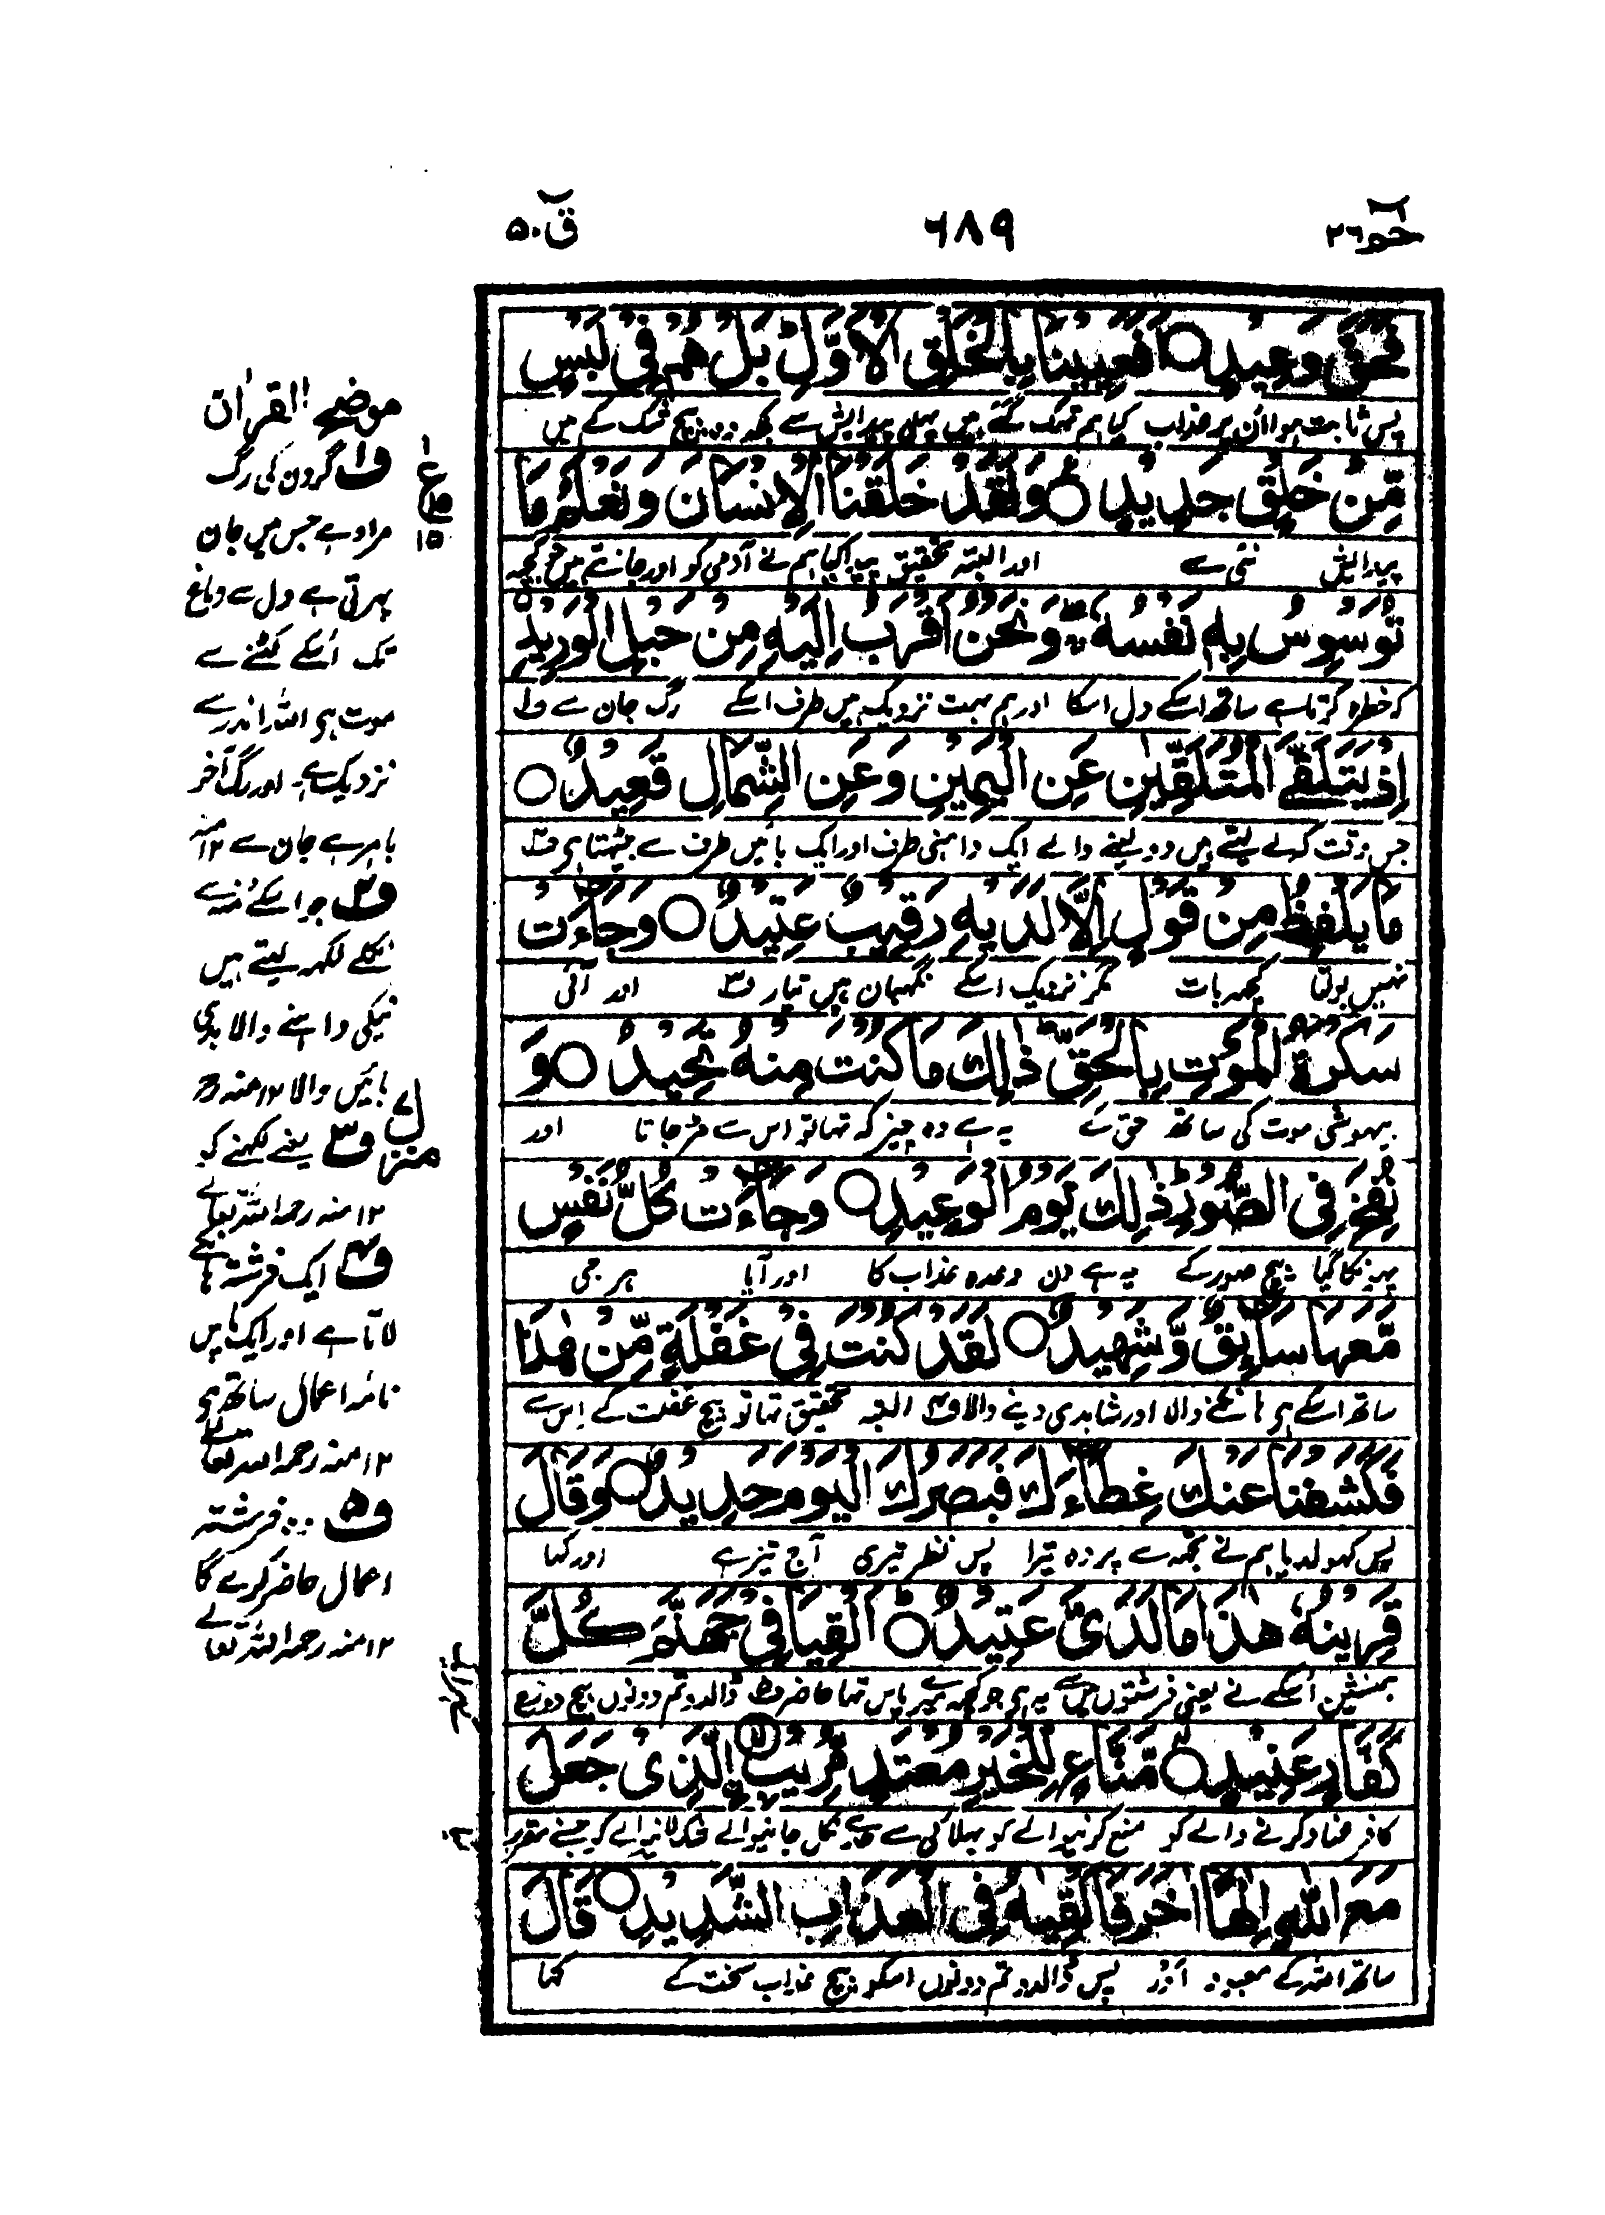 حٰمٓ ٢٦
٦٨٩
قٓ ٥٠
فَحَقَّ وَعِيْدِ ○ اَفَعَيِيْنَا بِالْخَلْقِ الْاَوَّلِ ؕ بَلْ هُمْ فِيْ لَبْسٍ
پس ثابت ہوا اُن پر عذاب کیا ہم تھک گئے ہیں پہلی پیدایش سے بلکہ وہ بیچ شک کے ہیں
مِّنْ خَلْقٍ جَدِيْدٍ ○ وَلَقَدْ خَلَقْنَا الْاِنْسَانَ وَنَعْلَمُ مَا
پیدایش نئی سے اور البتہ تحقیق پیدا کیا ہم نے آدمی کو اور جانتے ہیں جو کچھ
تُوَسْوِسُ بِهٖ نَفْسُهٗ ۖ وَنَحْنُ اَقْرَبُ اِلَيْهِ مِنْ حَبْلِ الْوَرِيْدِ
کہ خطرہ کرتا ہے ساتھ اسکے دل اسکا اور ہم بہت نزدیک ہیں طرف اسکے رگ جان سے ف۱
اِذْ يَتَلَقَّى الْمُتَلَقِّيٰنِ عَنِ الْيَمِيْنِ وَعَنِ الشِّمَالِ قَعِيْدٌ ○
جس وقت کہ لے لیتے ہیں دو لینے والے ایک داہنی طرف اور ایک بائیں طرف سے بیٹھا ہی ف۲
مَا يَلْفِظُ مِنْ قَوْلٍ اِلَّا لَدَيْهِ رَقِيْبٌ عَتِيْدٌ ○ وَجَآءَتْ
نہیں بولتا کچھ بات مگر نزدیک اسکے نگہبان ہیں تیار ف۳ اور آئی
سَكْرَةُ الْمَوْتِ بِالْحَقِّ ؕ ذٰلِكَ مَا كُنْتَ مِنْهُ تَحِيْدُ ○ وَ
بیہوشی موت کی ساتھ حق کے یہ ہے وہ چیز کہ تھا تو اس سے مڑ جاتا اور
نُفِخَ فِي الصُّوْرِ ؕ ذٰلِكَ يَوْمُ الْوَعِيْدِ ○ وَجَآءَتْ كُلُّ نَفْسٍ
پھونکا گیا بیچ صور کے یہ ہے دن وعدہ عذاب کا اور آیا ہر جی
مَّعَهَا سَآئِقٌ وَّشَهِيْدٌ ○ لَقَدْ كُنْتَ فِيْ غَفْلَةٍ مِّنْ هٰذَا
ساتھ اسکے ہی ہانکنے والا اور شاہدی دینے والا ف۴ البتہ تحقیق تھا تو بیچ غفلت کے اِس سے
فَكَشَفْنَا عَنْكَ غِطَآءَكَ فَبَصَرُكَ الْيَوْمَ حَدِيْدٌ ○ وَقَالَ
پس کھولدیا ہم نے تجھ سے پردہ تیرا پس نظر تیری آج تیز ہے اور کہا
قَرِيْنُهٗ هٰذَا مَا لَدَيَّ عَتِيْدٌ ○ ؕ اَلْقِيَا فِيْ جَهَنَّمَ كُلَّ
ہمنشین اُسکے نے یعنی فرشتوں میں سے یہ ہی جو کچھ میرے پاس تھا حاضر ف۵ ڈالدو تم دونوں بیچ دوزخ
كَفَّارٍ عَنِيْدٍ ○ مَّنَّاعٍ لِّلْخَيْرِ مُعْتَدٍ مُّرِيْبٍ ۙ الَّذِيْ جَعَلَ
کافر عناد کرنے والے کو منع کرنیوالے کو بھلائی سے حد سے نکل جانیوالے شک لانیوالے کو جسنے مقرر
مَعَ اللّٰهِ اِلٰهًا اٰخَرَ فَاَلْقِيٰهُ فِي الْعَذَابِ الشَّدِيْدِ ○ قَالَ
ساتھ اللہ کے معبود اَور پس ڈالدو تم دونوں اسکو بیچ عذاب سخت کے کہا
موضح القرآن
ف۱ گردن کی رگ
مراد ہے جس میں جان
پھرتی ہے دل سے دماغ
تک اُسکے کٹنے سے
موت ہی اللہ اندر سے
نزدیک ہے اور رگ آخر
باہر ہے جان سے ۱۲ منہ
ف۲ جو اسکے مُنہ سے
نکلے لکھہ لیتے ہیں
نیکی داہنے والا بدی
بائیں والا ۱۲ منہ رح
ف۳ یعنے لکھنے کو
۱۲ منہ رحمہ اللہ تعالے
ف۴ ایک فرشتہ ہانکے
لاتا ہے اور ایک پاس
نامہ اعمال ساتھ ہی
۱۲ منہ رحمہ اللہ تعالے
ف۵ فرشتہ
اعمال حاضر کرے گا
۱۲ منہ رحمہ اللہ تعالے
ع
۱۵
۱۵
منزل ۷